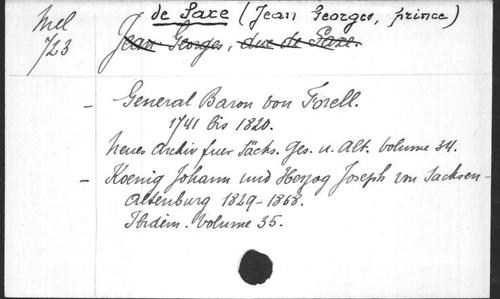 Mel
723
de Saxe (Jean Georges, prince)
Jean Georges, duc de Saxe.
- General Baron von Forell.
1741 bis 1820.
Neues Archiv fuer Sächs. Ges. u. Alt. Volume 34.
- Koenig Johann und Herzog Joseph von Sachsen-
Altenburg 1829-1868.
Ibidem. Volume 35.